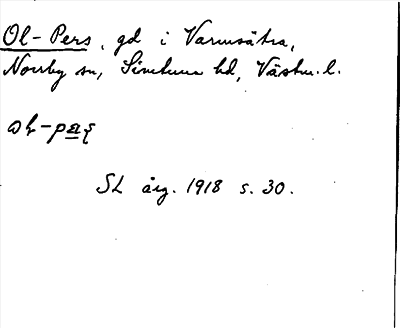 Ol-Pers, gd i Varmsätra,
Norrby sn, Simtuna hd, Västm. l.
SL årg. 1918 s. 30.